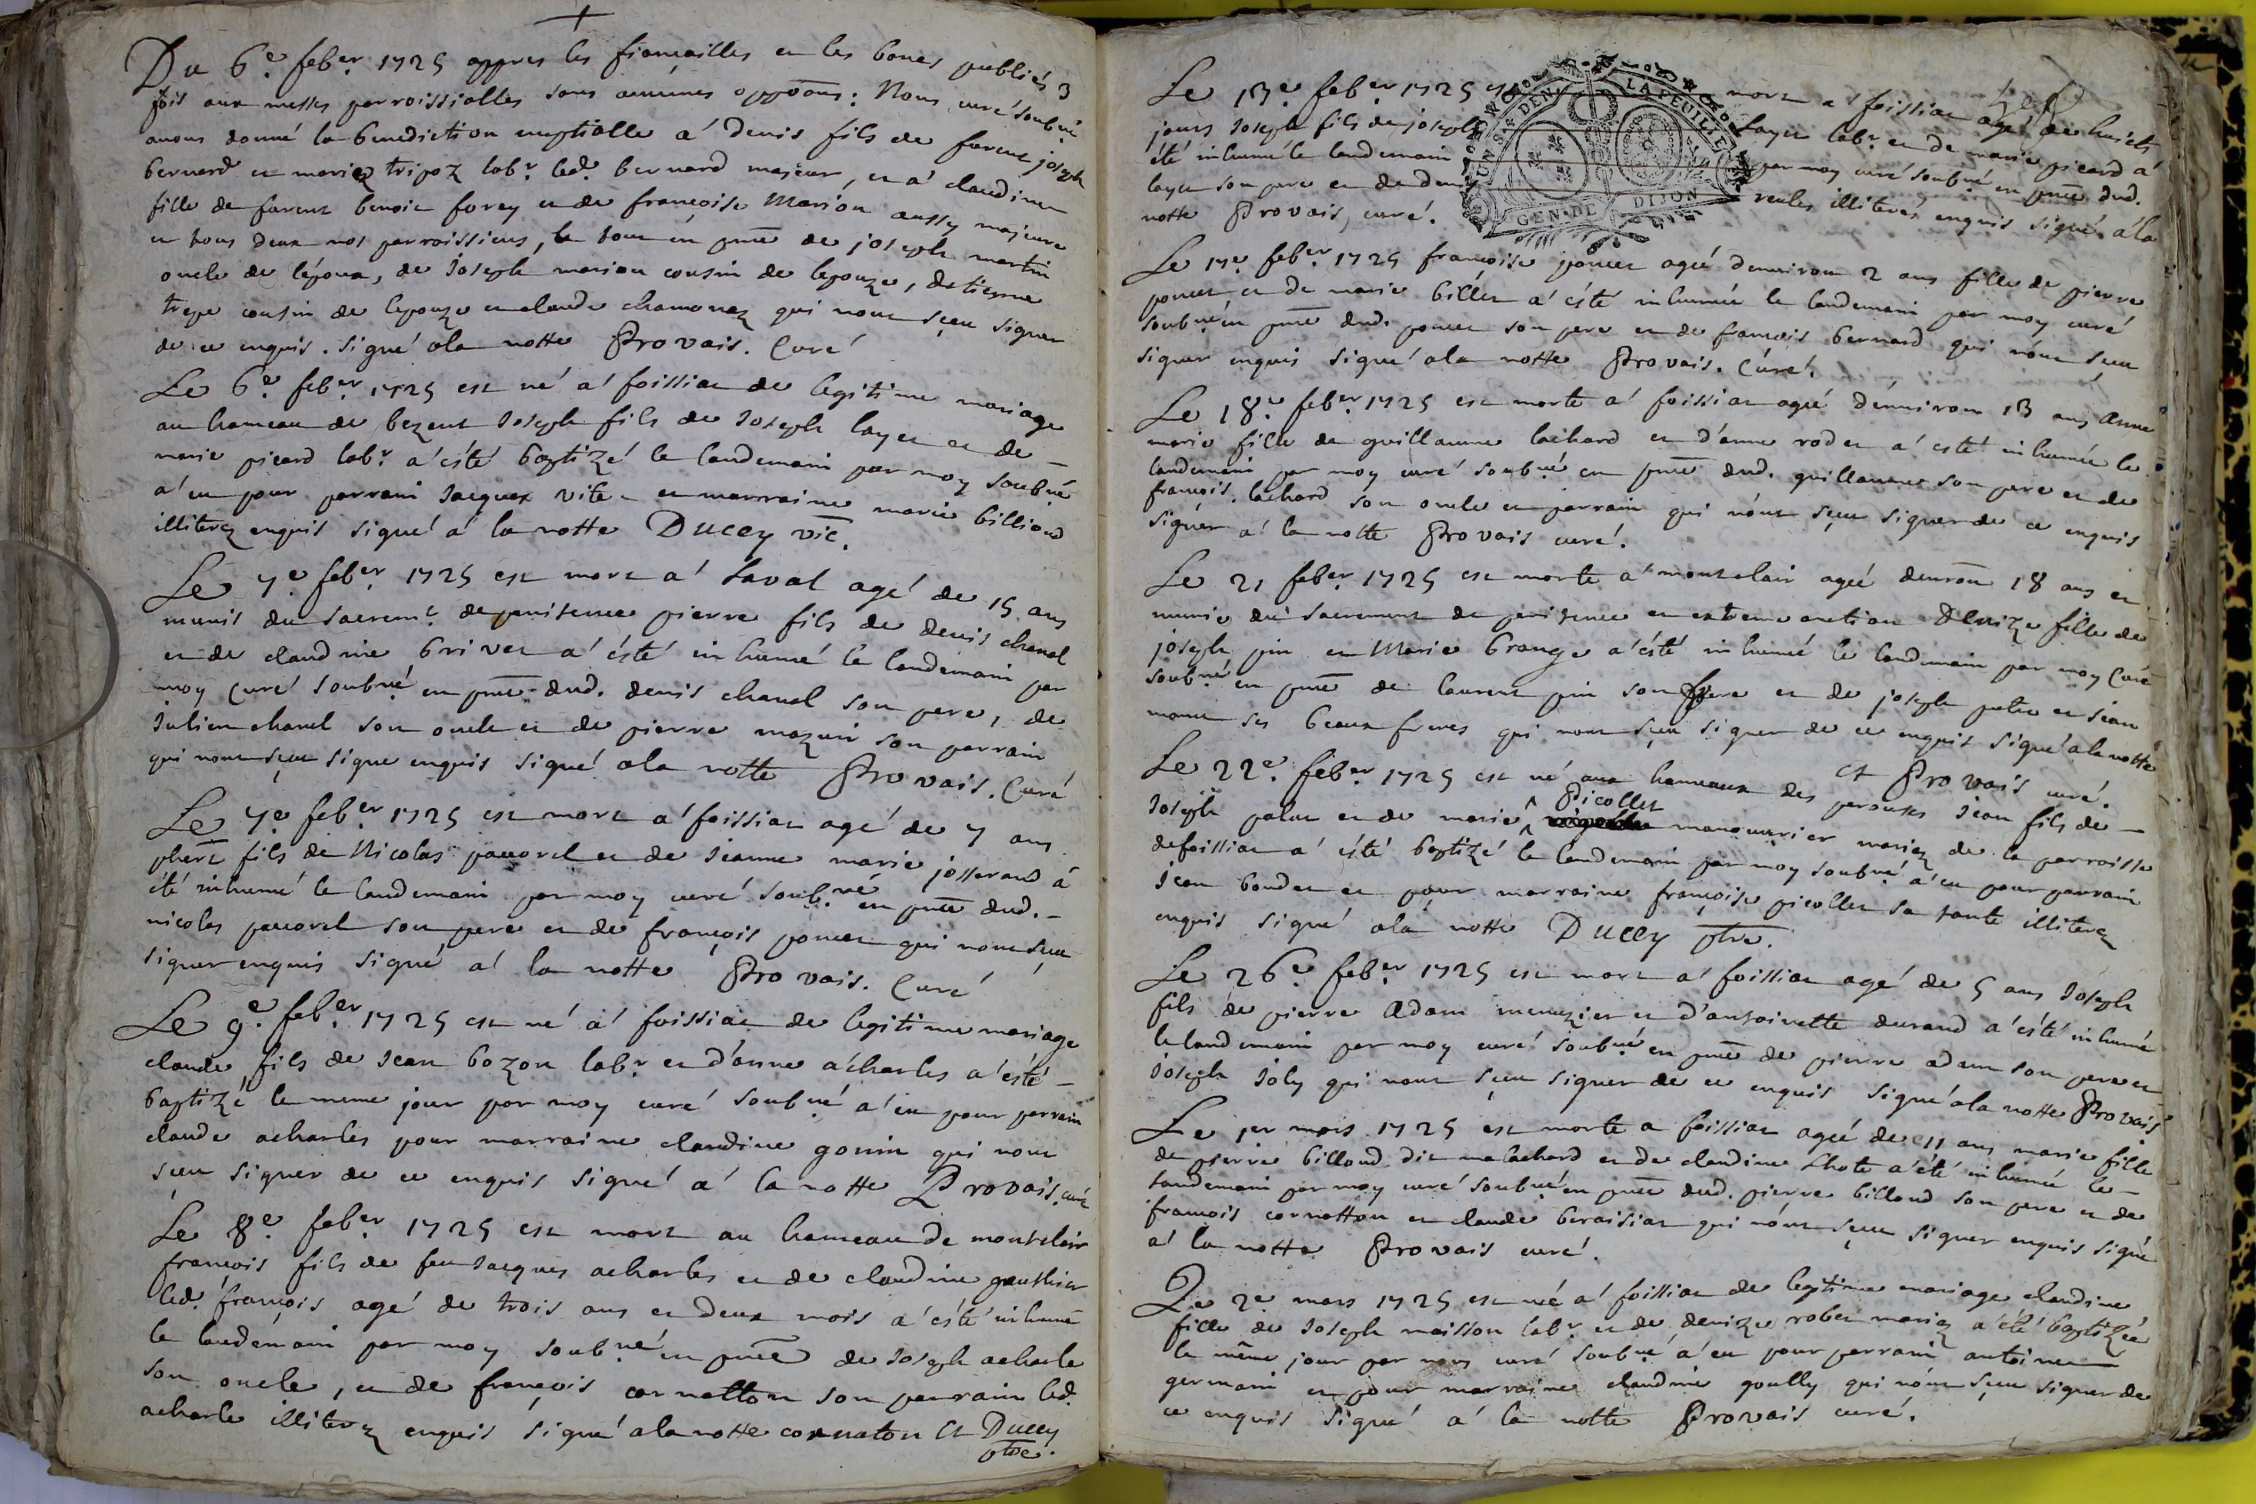 Du 6e. feber. 1725 appres les fiançailles et les bones publiés 3
fois aux messes parroissialles sans aucunes oppoons: Nous curé soubné
avons donné la benediction nuptialle a' denis fils de farent joseph
bernard et mariez tripoz labr. led. bernard majeur, et a' claudine
fille de farent benoit forey et de françoise Marion aussy majeure
et tous deux nos parroissiens, le tout en pnce de joseph martin
oncle de l'époux, de joseph marion cousin de lepouze, detienne
trepe cousin de lepouze et claude chamonaz qui nont sceu signer
de ce enquis. signé ala notte Provais. Curé
Le 6e. feber. 1725 est né a' foissiat de legitime mariage
au hameau de bezent Joseph fils de Joseph layet et de
marie picard labr. a' ésté baptizé le landemain par moy soubné
a' eu pour parrain Jacques vite et marraine marie billioud
illiterez enquis signé a' la notte Ducey vic.
Le 7e feber. 1725 est mort a' Laval agé de 15 ans
munis du sacremt. de penitence pierre fils de denis chanel
et de claudine brivet a' ésté inhumé le landemain par
moy Curé soubné en pnce dud. denis chanel son pere, de
Julien chanel son oncle et de pierre mazuir son parrain
qui nont sceu signe enquis signé ala notte Provais. Curé
Le 7e feber. 1725 est mort a' foissiat agé de 7 ans
phert fils de Nicolas pauorel et de Jeanne marie josserand a'
été inhumé le landemain par moy curé soubné en pnce dud.
nicolas pauorel son pere et de françois poncet qui nont sceu
signer enquis signé a' la notte Provais. Curé
Le 9e. feber. 1725 est né a' foissiat de legitime mariage
claude fils de Jean bozon labr. et d'anne acharles a' ésté
baptizé le meme jour par moy curé soubné a' eu pour parrain
claude acharles pour marraine claudine gonin qui nont
sceu signer de ce enquis signé a' la notte Provais. curé
Le 8e feber. 1725 est mort au hameau de montclair
françois fils de feu Jacques acharles et de claudine gauthier
led. françois agé de trois ans et deux mois a' ésté inhumé
le landemain par moy soubné en pnce de Joseph acharle
son oncle, et de françois cornatton son parrain led.
acharle illiterez enquis signé ala notte cornaton Et Ducey
ptre.
Le 13e. feber. 1725 est mort a' foissiat agé de huict
jours Joseph fils de joseph Layet labr. et de marie picard a'
été inhumé le landemain par moy curé soubné en pnce dud.
layet son pere et de denis illiterez enquis signé ala
notte Provais, curé.
Le 17e. feber. 1725 françoise poncet ageé denviron 2 ans fille de pierre
poncet et de marie billet a' ésté inhumée le landemain par moy curé
soubné en pnce dud. poncet son pere et de francois bernard qui nont sceu
signer enquis signé ala notte Provais. Curé.
Le 18e. feber. 1725 est morte a' foissiat ageé denviron 13 ans Anne
marie fille de guillaume lachard et d'anne rodet a' esté inhumée le
landemain par moy curé soubné en pnce dud. guillaume son pere et de
françois lachard son oncle et parrain qui nont sceu signer de ce enquis
signer a' la notte Provais curé.
Le 21 feber. 1725 est morte a' montclair ageé denvron 18 ans et
munie du sacrement de penitence et extreme onction Denize fille de
joseph pin et Marie brange a' ésté inhumé le landemain par moy Curé
soubné en pnce de laurent pin son frere et de joseph petre et Jean
mont ses beaux freres qui nont sceu signer de ce enquis signé ala notte
Et Provais curé.
Le 22e. feber. 1725 est né aux hameaux des perouses Jean fils de
Joseph palut et de marie Picollet manouvrier mariez de la parroisse
defoissiat a' ésté baptizé le landemain par moy soubné a' eu pour parrain
Jean boudet et pour marraine françoise picollet sa tante illiterez
enquis signé ala notte Ducey ptre.
Le 26e feber. 1725 est mort a' foissiat agé de 5 ans Joseph
fils de pierre Adam menuzier et d'antoinette durand a' ésté inhumé
le landemain par moy curé soubné en pnce de pierre adam son pere et
Joseph Joly qui nont sceu signer de ce enquis signé ala notte Provais
Le 1er mars 1725 est morte a foissiat ageé de 11 ans marie fille
de pierre billoud dit malachard et de claudine Lhote a' été inhumée le
landemain par moy curé soubné en pnce dud. pierre billoud son pere et de
françois cornatton et claude beraisiat qui nont sceu signer enquis signé
a' la notte Provais curé.
Le 2e mars 1725 est né a' foissiat de legitime mariage claudine
fille de Joseph moisson labr. et de denize robin mariez a' été baptizée
le même jour par nous curé soubné a' eu pour parrain antoine
germain et pour marraine claudine goully qui nont sceu signer de
ce enquis signé a' la notte Provais curé.
UN S. 4 DEN. LA FEUILLE
GEN. DE DIJON